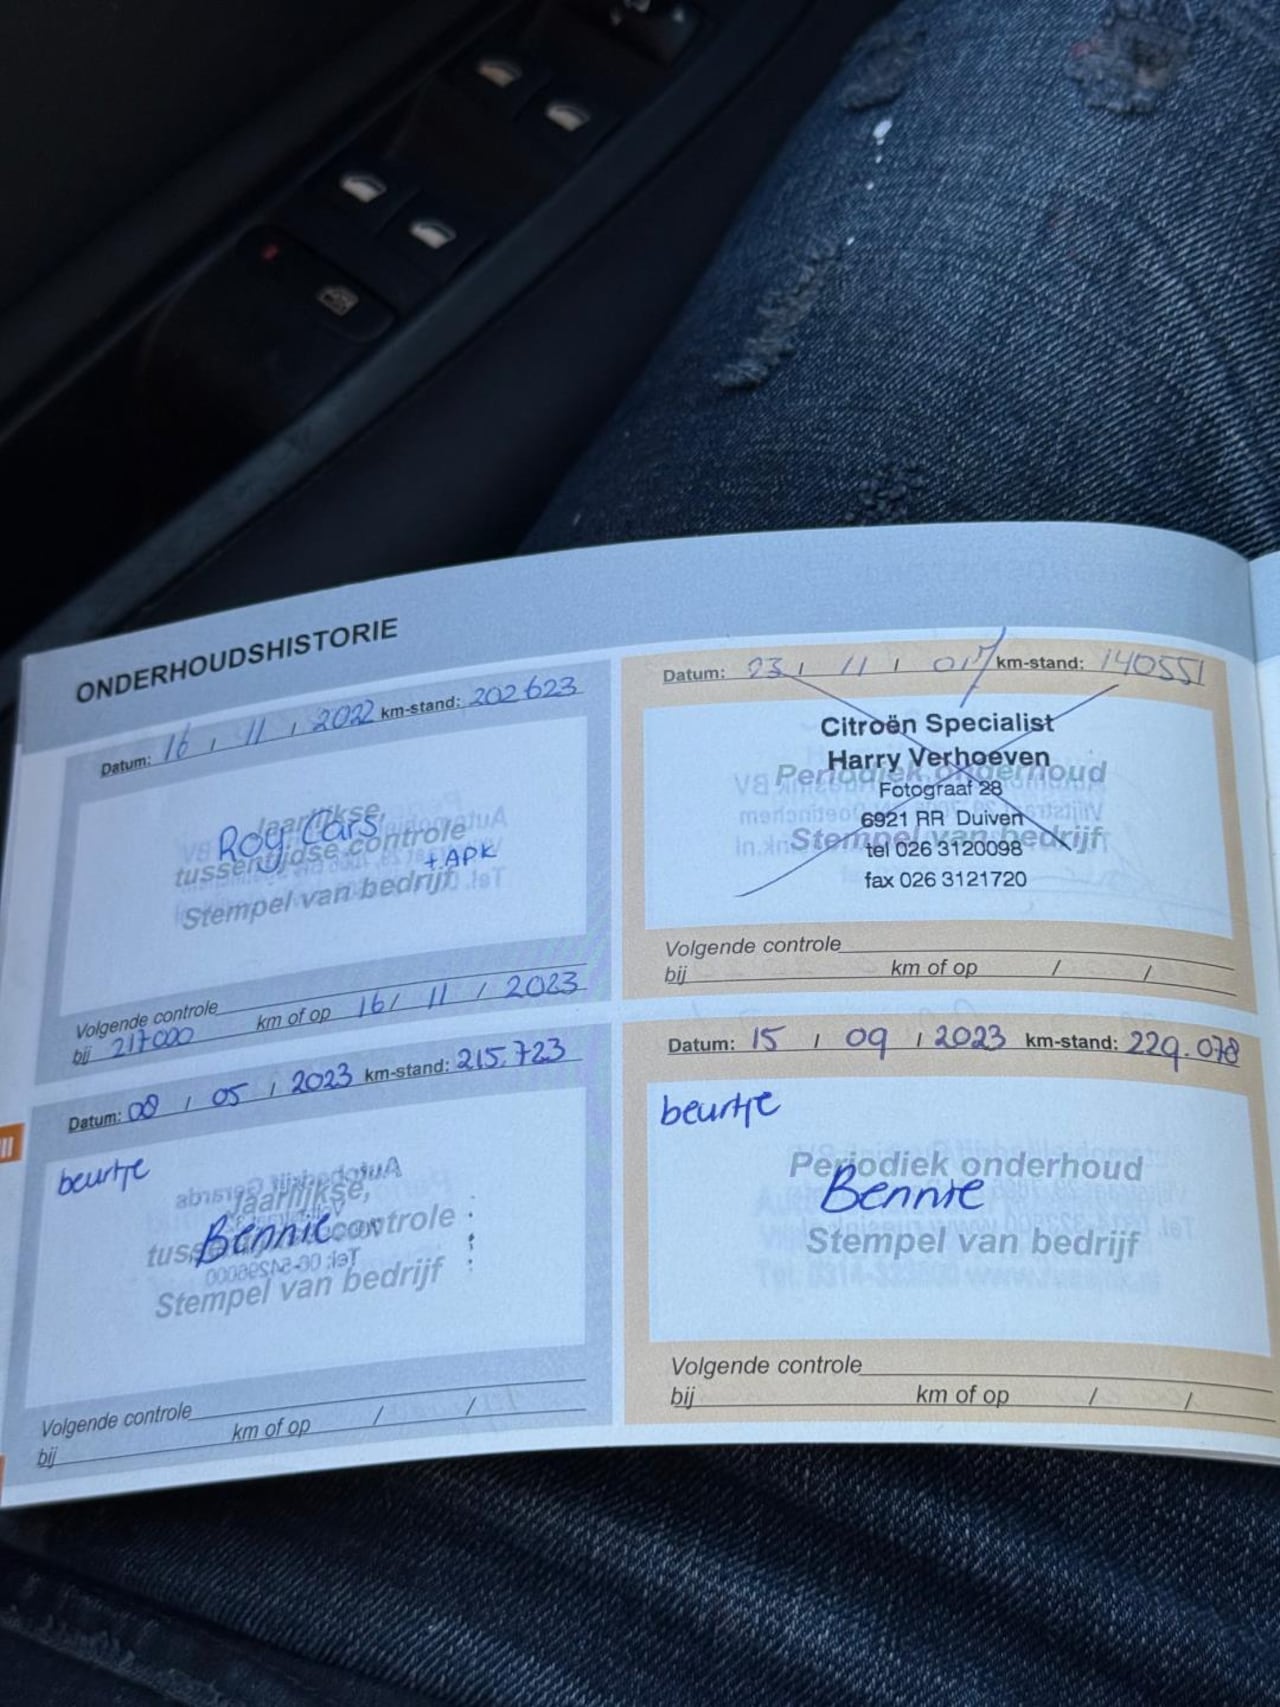 ONDERHOUDSHISTORIE
Datum: 16 / 11 / 2022 km-stand: 202623
Jaarlijkse,
Roy Cars
tussentijdse controle
+ APK
Stempel van bedrijf
Volgende controle
bij 217000 km of op 16 / 11 / 2023
Datum: 08 / 05 / 2023 km-stand: 215.723
beurtje
Jaarlijkse,
Bennie
tussentijdse controle
Stempel van bedrijf
Volgende controle
bij km of op / /
Datum: 23 / 11 / 017 km-stand: 140551
Citroën Specialist
Harry Verhoeven
Periodiek onderhoud
Fotograaf 28
6921 RR Duiven
Stempel van bedrijf
tel 026 3120098
fax 026 3121720
Volgende controle
bij km of op / /
Datum: 15 / 09 / 2023 km-stand: 229.078
beurtje
Periodiek onderhoud
Bennie
Stempel van bedrijf
Volgende controle
bij km of op / /